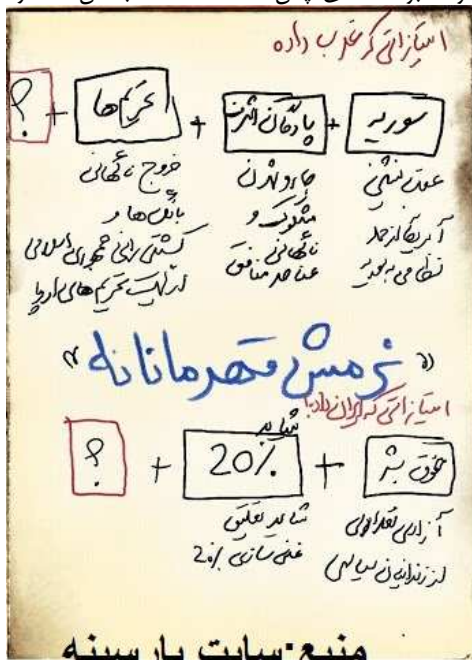 امتیازاتی که غرب داده
سوریه + پادگان اشرف + تحریم‌ها + ؟
عقب نشینی
آمریکا از حمله
نظامی به سوریه
جارو شدن
مشکوک و
ناگهانی
عناصر منافق
خروج ناگهانی
بانک‌ها و
کشتی رانی جمهوری اسلامی
از لیست تحریم‌های اروپا
«نرمش قهرمانانه»
امتیازاتی که ایران داد:
حقوق بشر + شاید 20٪ + ؟
آزادی تعدادی
از زندانیان سیاسی
شاید تعلیق
غنی سازی 20٪
منبع:سایت پارسینه